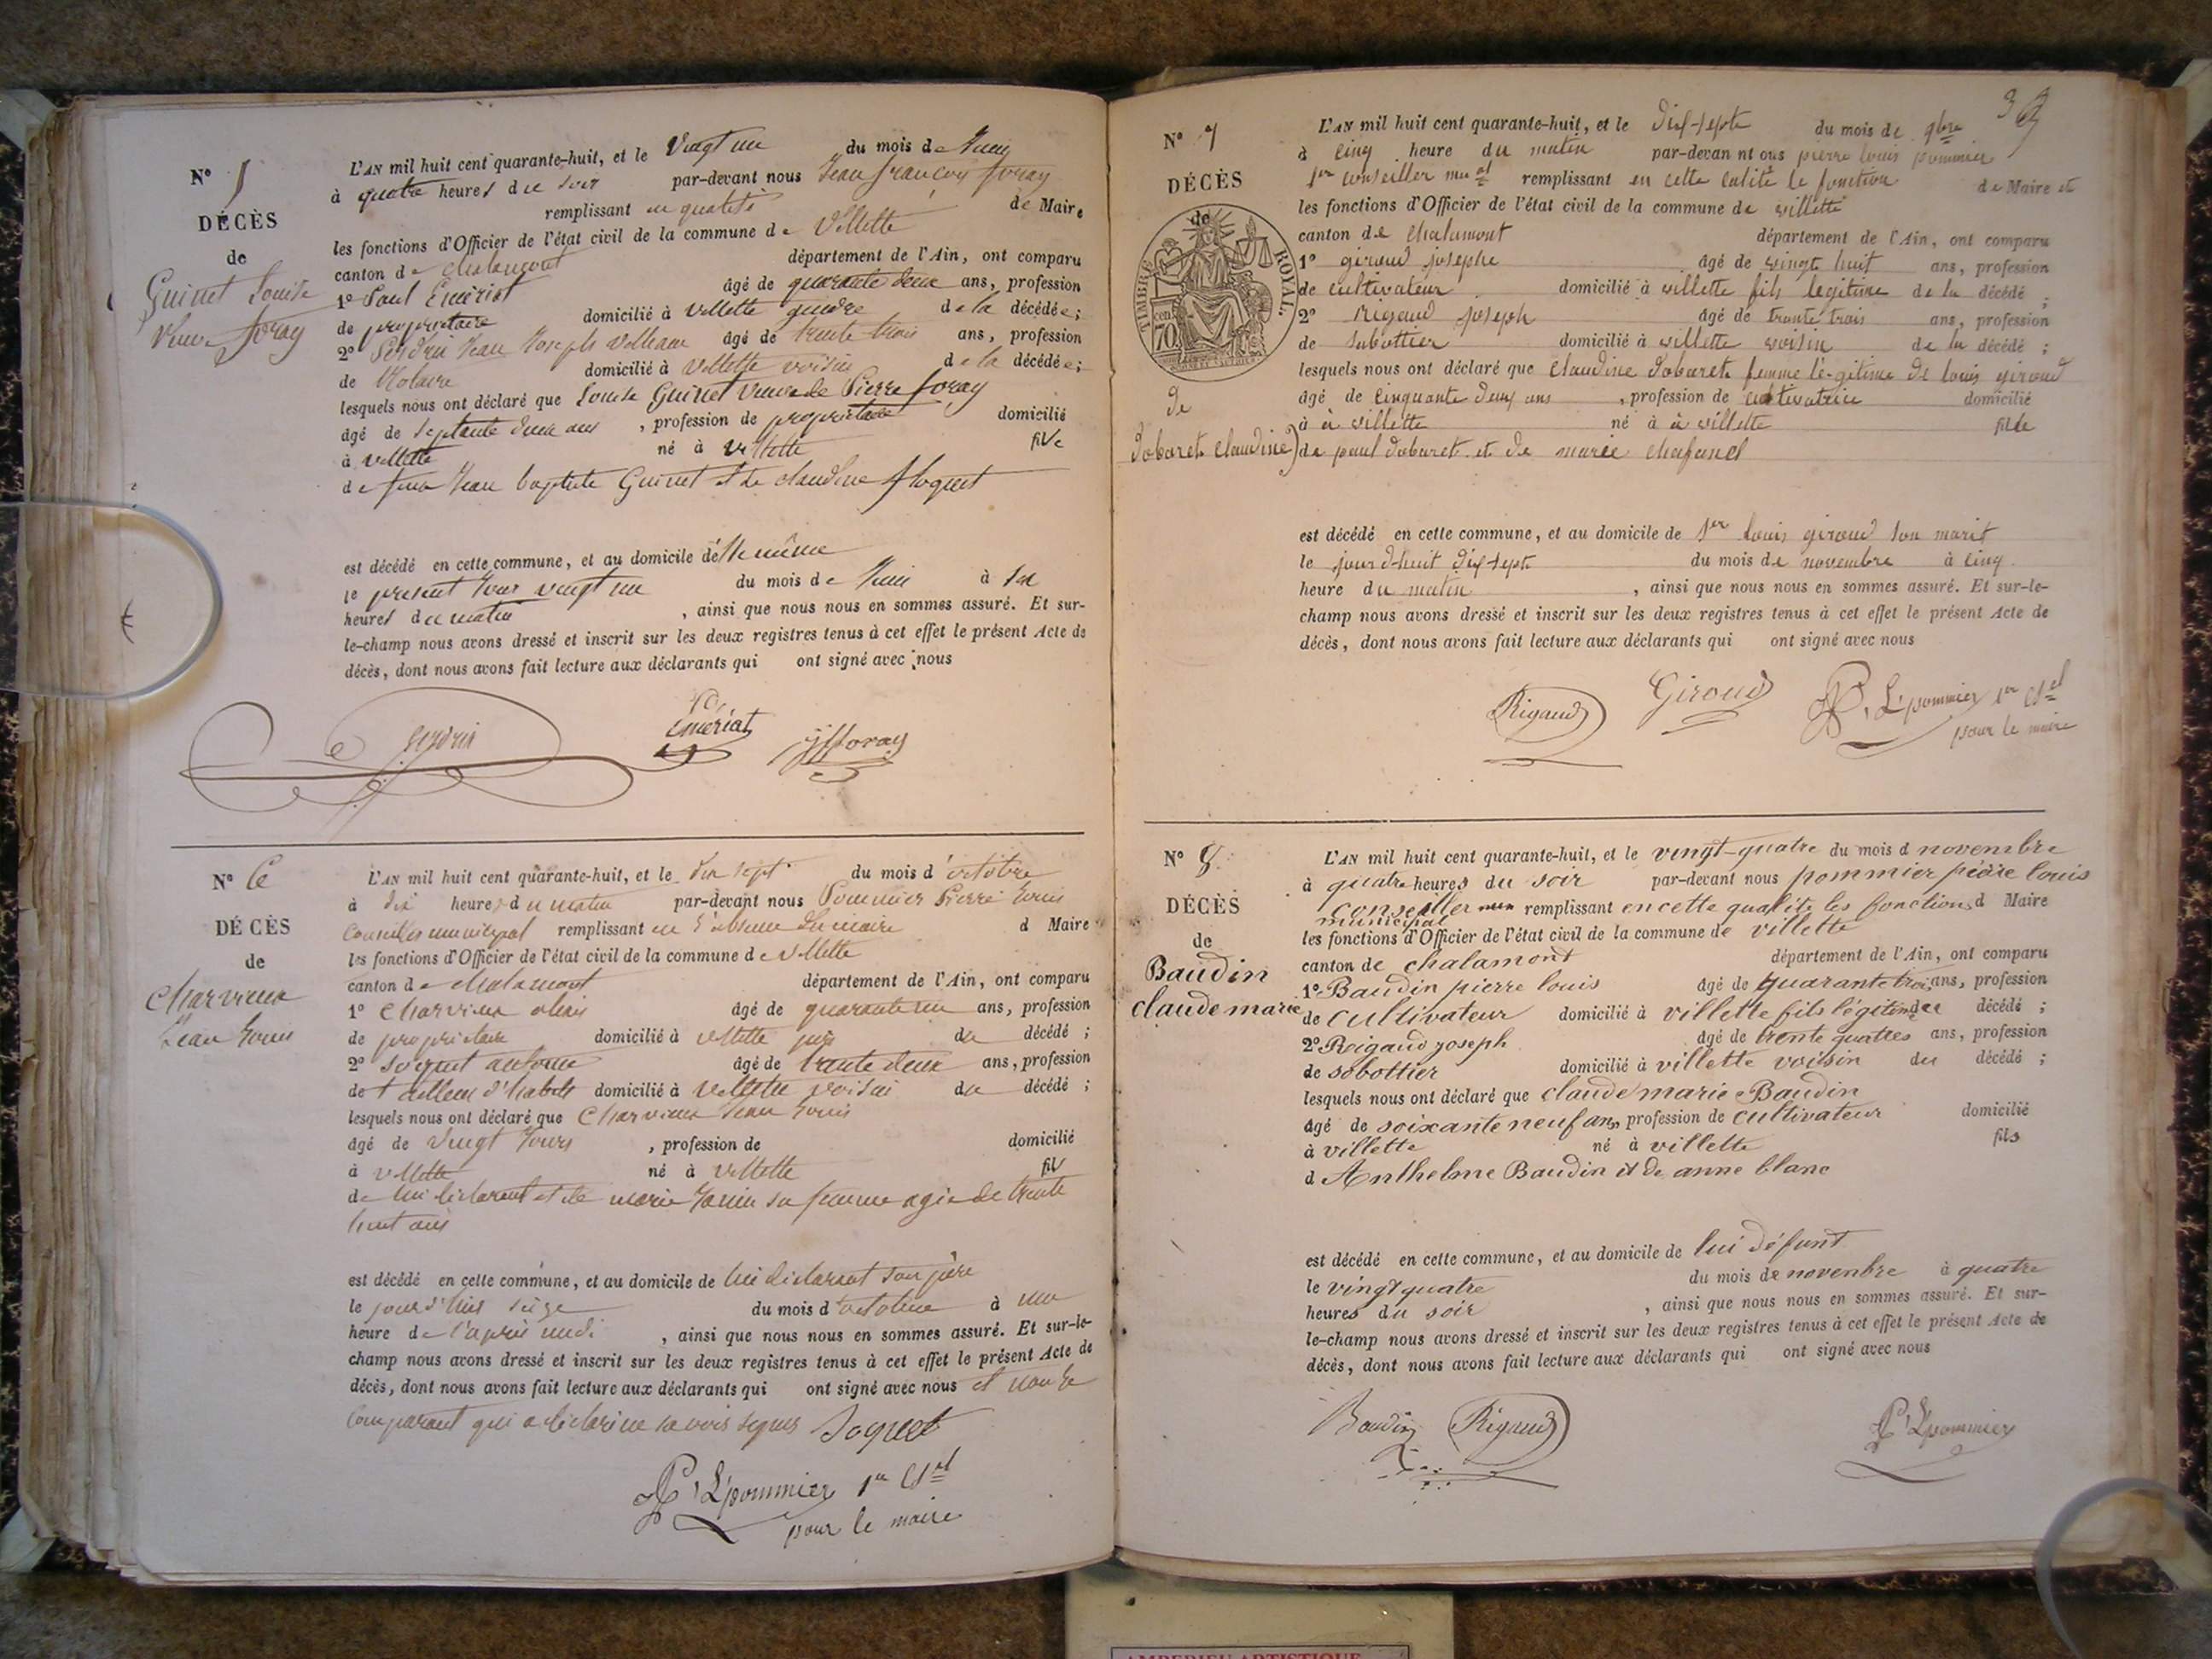 N° 5
DÉCÈS
de
Guinet Louise
Veuve Joray
L'AN mil huit cent quarante-huit, et le Vingt un du mois de Juin
à quatre heures du soir par-devant nous Jean françois Joray
remplissant en qualité de Maire
les fonctions d'Officier de l'état civil de la commune de Villette
canton de chalamont département de l'Ain, ont comparu
1° Paul Emériat âgé de quarante deux ans, profession
de propriétaire domicilié à Villette gendre de la décédée;
2° Jean Joseph âgé de trente trois ans, profession
de Notaire domicilié à Villette voisin de la décédée;
lesquels nous ont déclaré que Louise Guinet Veuve de Pierre Joray
âgé de septante deux ans, profession de propriétaire domicilié
à villette né à villette fille
de feu Jean baptiste Guinet et de claudine
est décédé en cette commune, et au domicile d'elle même
le présent Jour vingt un du mois de Juin à six
heures du matin, ainsi que nous nous en sommes assuré. Et sur-
le-champ nous avons dressé et inscrit sur les deux registres tenus à cet effet le présent Acte de
décès, dont nous avons fait lecture aux déclarants qui ont signé avec nous
Emériat
jfJoray
N° 6
DÉCÈS
de
Charvieux
Jean Louis
L'AN mil huit cent quarante-huit, et le dix sept du mois d'octobre
à dix heures du matin par-devant nous Pommier Pierre Louis
Conseiller municipal remplissant en l'absence du maire d Maire
les fonctions d'Officier de l'état civil de la commune de villette
canton de chalamont département de l'Ain, ont comparu
1° Charvieux âgé de quarante un ans, profession
de propriétaire domicilié à Villette père du décédé;
2° Soquet antoine âgé de trente deux ans, profession
de tailleur d'habits domicilié à Villette voisin du décédé;
lesquels nous ont déclaré que Charvieux Jean Louis
âgé de vingt Jours, profession de domicilié
à villette né à villette fils
de lui déclarant et de marie Janin sa femme agée de trente
huit ans
est décédé en cette commune, et au domicile de lui déclarant son père
le jourd'hui seize du mois d'octobre à une
heure de l'après midi, ainsi que nous nous en sommes assuré. Et sur-le-
champ nous avons dressé et inscrit sur les deux registres tenus à cet effet le présent Acte de
décès, dont nous avons fait lecture aux déclarants qui ont signé avec nous et non le
comparant qui a déclaré ne savoir signer Soquet
P. Lpommier 1er Csel
pour le maire
N° 7
DÉCÈS
de
TIMBRE ROYAL
cen. 70
de
dobaret claudine
L'AN mil huit cent quarante-huit, et le dix-septe du mois de 9bre
à cinq heure du matin par-devant nous pierre louis pommier
1er conseiller mual remplissant en cette calité le fonction de Maire et
les fonctions d'Officier de l'état civil de la commune de villette
canton de chalamont département de l'Ain, ont comparu
1° giroud josephe âgé de vingt huit ans, profession
de cultivateur domicilié à villette fils legitime de la décédé;
2° rigaud joseph âgé de trente trois ans, profession
de sabottier domicilié à villette voisin de la décédé;
lesquels nous ont déclaré que claudine dobaret femme légitime de louis giroud
âgé de cinquante deux ans, profession de cultivatrice domicilié
à à villette né à à villette fille
de paul dobaret et de marie chafanel
est décédé en cette commune, et au domicile de louis giroud son marit
le jourd-huit dix-sept du mois de novembre à cinq
heure du matin, ainsi que nous nous en sommes assuré. Et sur-le-
champ nous avons dressé et inscrit sur les deux registres tenus à cet effet le présent Acte de
décès, dont nous avons fait lecture aux déclarants qui ont signé avec nous
Rigaud Giroud P. Lpommier 1er Csel
pour le maire
N° 8
DÉCÈS
de
Baudin
claude marie
L'AN mil huit cent quarante-huit, et le vingt-quatre du mois d novembre
à quatre heures du soir par-devant nous pommier piérre louis
conseiller remplissant en cette qualité les fonctions d Maire
municipal
les fonctions d'Officier de l'état civil de la commune de villette
canton de chalamont département de l'Ain, ont comparu
1° Baudin pierre louis âgé de quarante trois ans, profession
de cultivateur domicilié à villette fils légitime du décédé;
2° Reigaud joseph âgé de trente quattes ans, profession
de sobottier domicilié à villette voisin du décédé;
lesquels nous ont déclaré que claude marie Baudin
âgé de soixante neuf ans, profession de cultivateur domicilié
à villette né à villette fils
d Anthelme Baudin et de anne blanc
est décédé en cette commune, et au domicile de lui défunt
le vingt quatre du mois de novenbre à quatre
heures du soir, ainsi que nous nous en sommes assuré. Et sur-
le-champ nous avons dressé et inscrit sur les deux registres tenus à cet effet le présent Acte de
décès, dont nous avons fait lecture aux déclarants qui ont signé avec nous
Baudin Rigaud P. Lpommier
AMBERIEU ARTISTIQUE